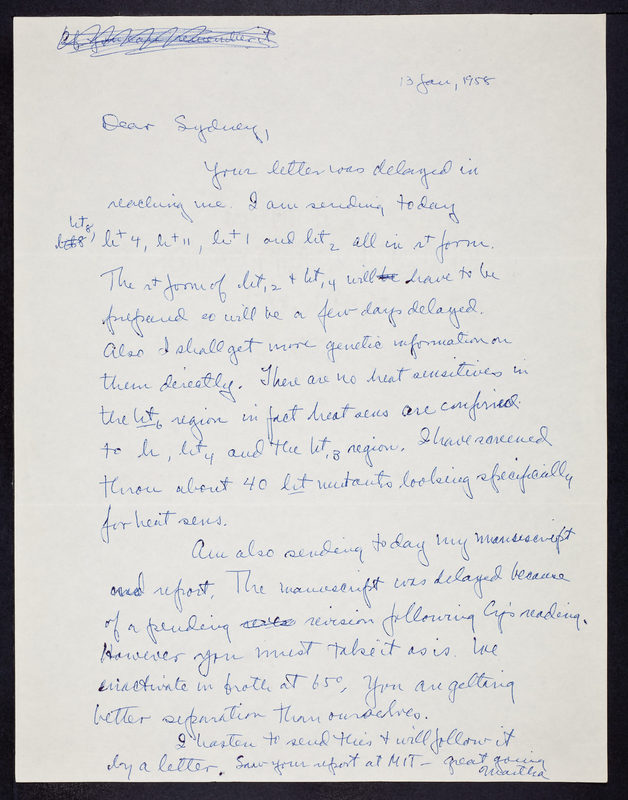 13 Jan, 1958
Dear Sydney,
Your letter was delayed in
reaching me. I am sending today
ht8, ht4, ht11, ht1 and ht2 all in r+ form.
The r+ form of ht12 + ht14 will have to be
prepared so will be a few days delayed.
Also I shall get more genetic information on
them directly. There are no heat sensitives in
the ht6 region in fact heat sens are confined
to h, ht4 and the ht13 region. I have screened
throu about 40 ht mutants looking specifically
for heat sens.
Am also sending today my manuscript
and report. The manuscript was delayed because
of a pending revision following Cy's reading.
However you must take it as is. We
inactivate in broth at 65°, You are getting
better separation than ourselves.
I hasten to send this + will follow it
by a letter. Saw your report at MIT - great going
Martha